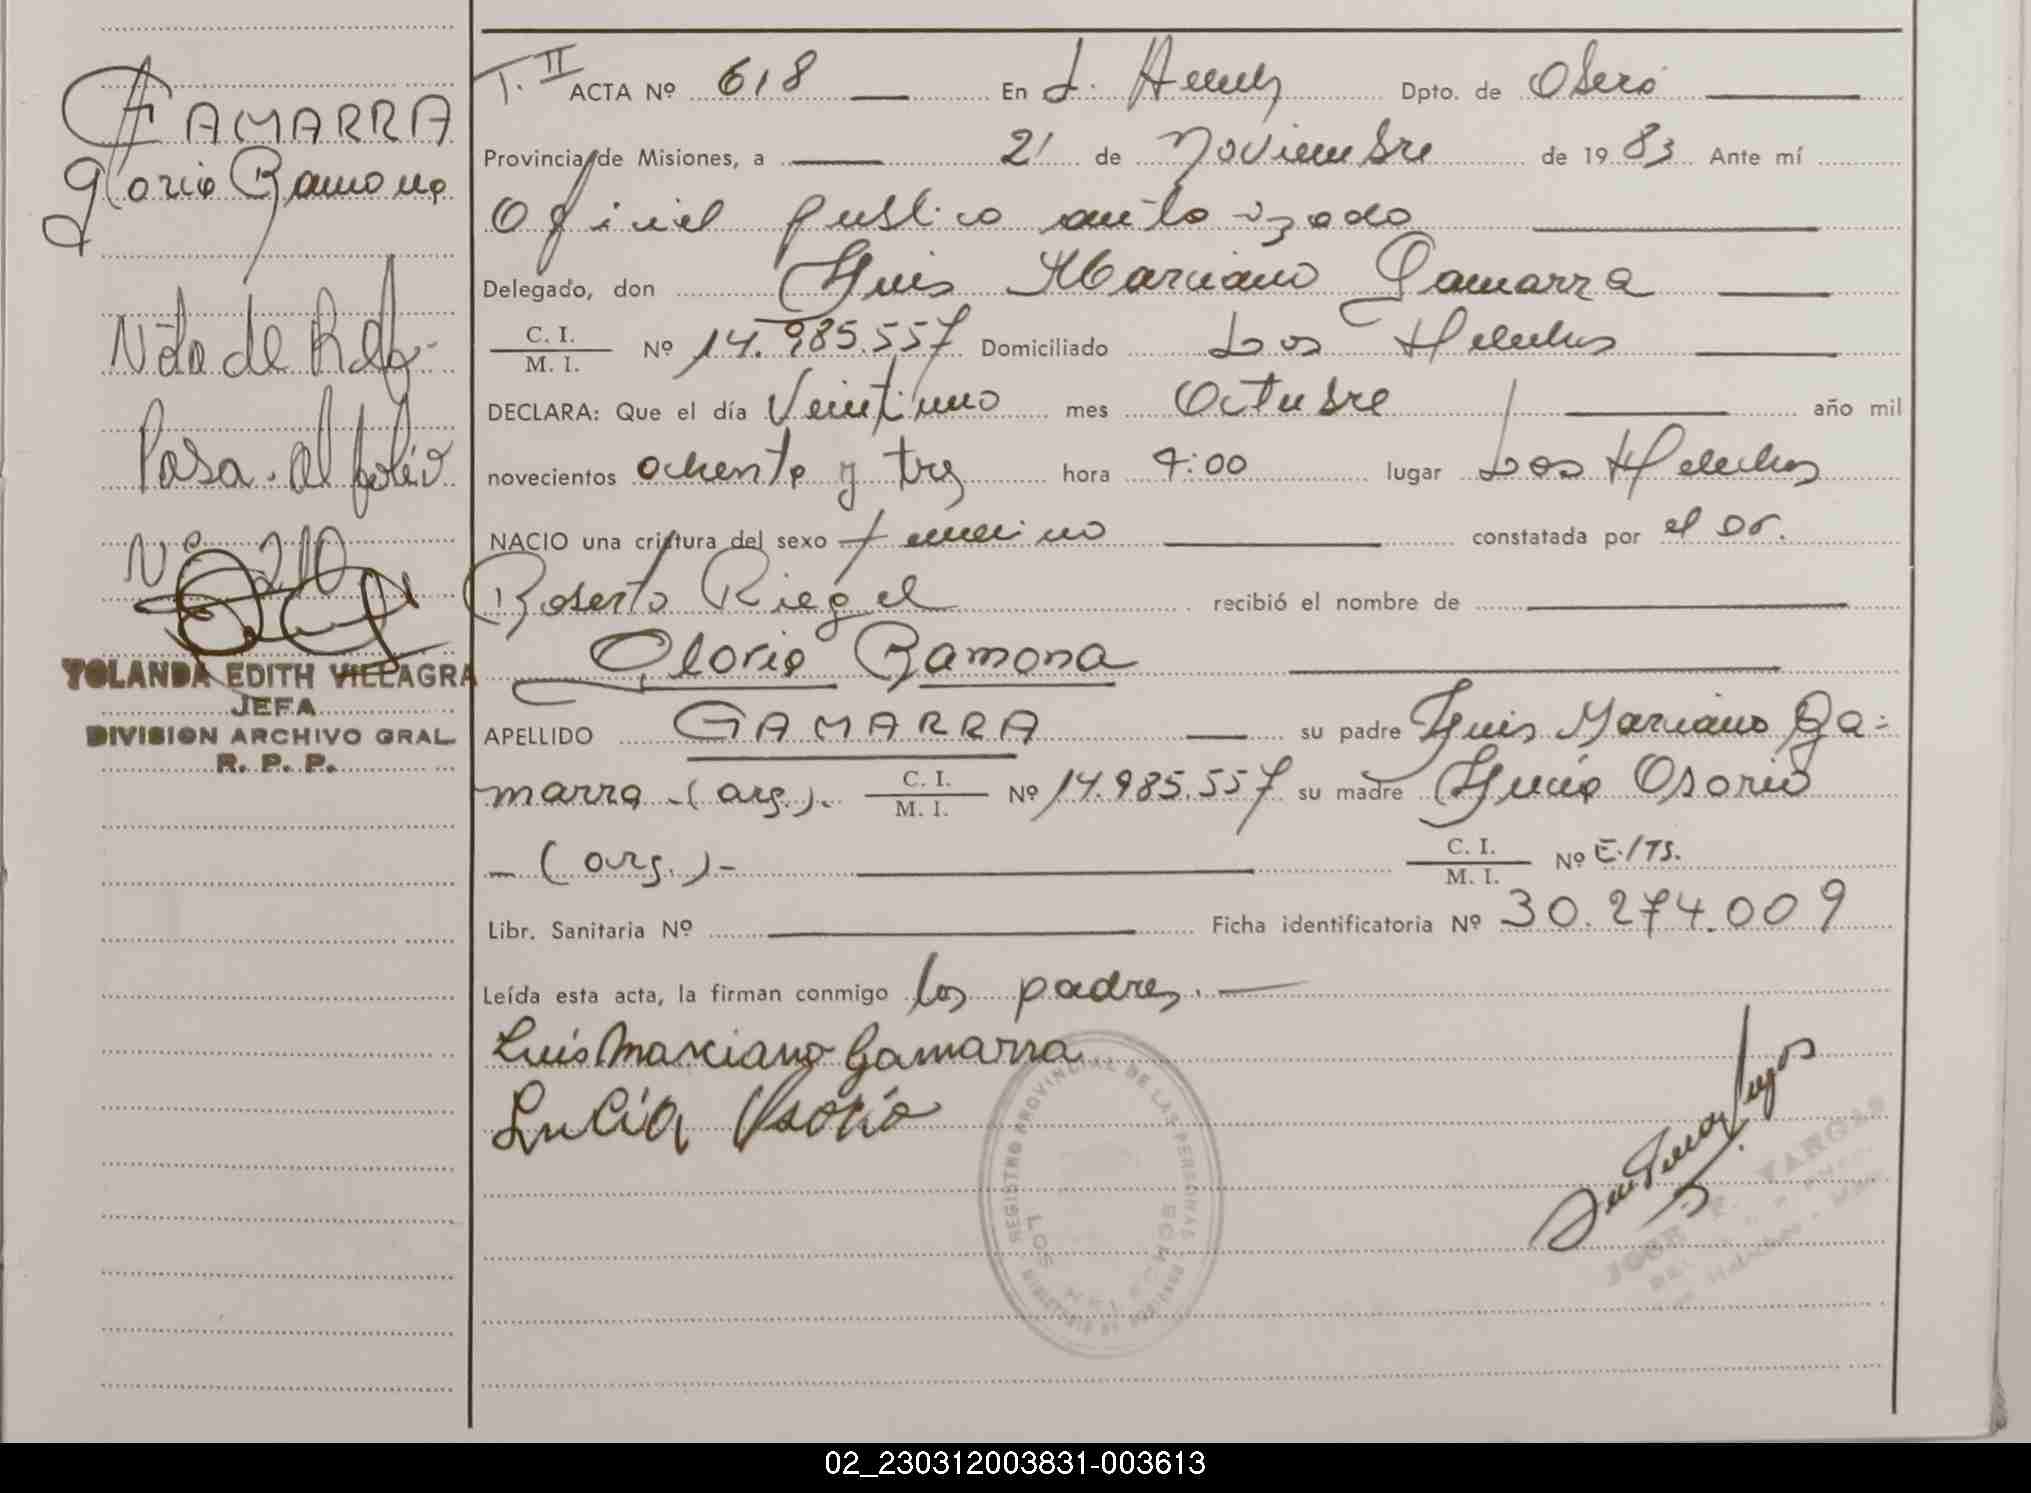 GAMARRA
Gloria Ramona
Nota de Ref.-
Pasa. al folio
Nº 210
YOLANDA EDITH VILLAGRA
JEFA
DIVISION ARCHIVO GRAL.
R. P. P.
T. II ACTA Nº 618 En L. Dpto. de Oberá
Provincia de Misiones, a 21 de Noviembre de 1983 Ante mí
Oficial publico autorizado
Delegado, don Luis Marciano Gamarra
C. I.
M. I. Nº 14.985.557 Domiciliado Los Helechos
DECLARA: Que el día Veintiuno mes Octubre año mil
novecientos ochenta y tres hora 9:00 lugar Los Helechos
NACIO una criatura del sexo femenino constatada por el Dr.
Roberto Riegel recibió el nombre de
Gloria Ramona
APELLIDO GAMARRA su padre Luis Marciano Ga-
marra (arg.). C. I.
M. I. Nº 14.985.557 su madre Lucía Osorio
(arg.)- C. I.
M. I. Nº E./TS.
Libr. Sanitaria Nº Ficha identificatoria Nº 30.274.009
Leída esta acta, la firman conmigo los padres.
Luis Marciano Gamarra
Lucía Osorio
REGISTRO PROVINCIAL DE LAS PERSONAS
LOS HELECHOS
JOSE F. VARGAS
02_230312003831-003613